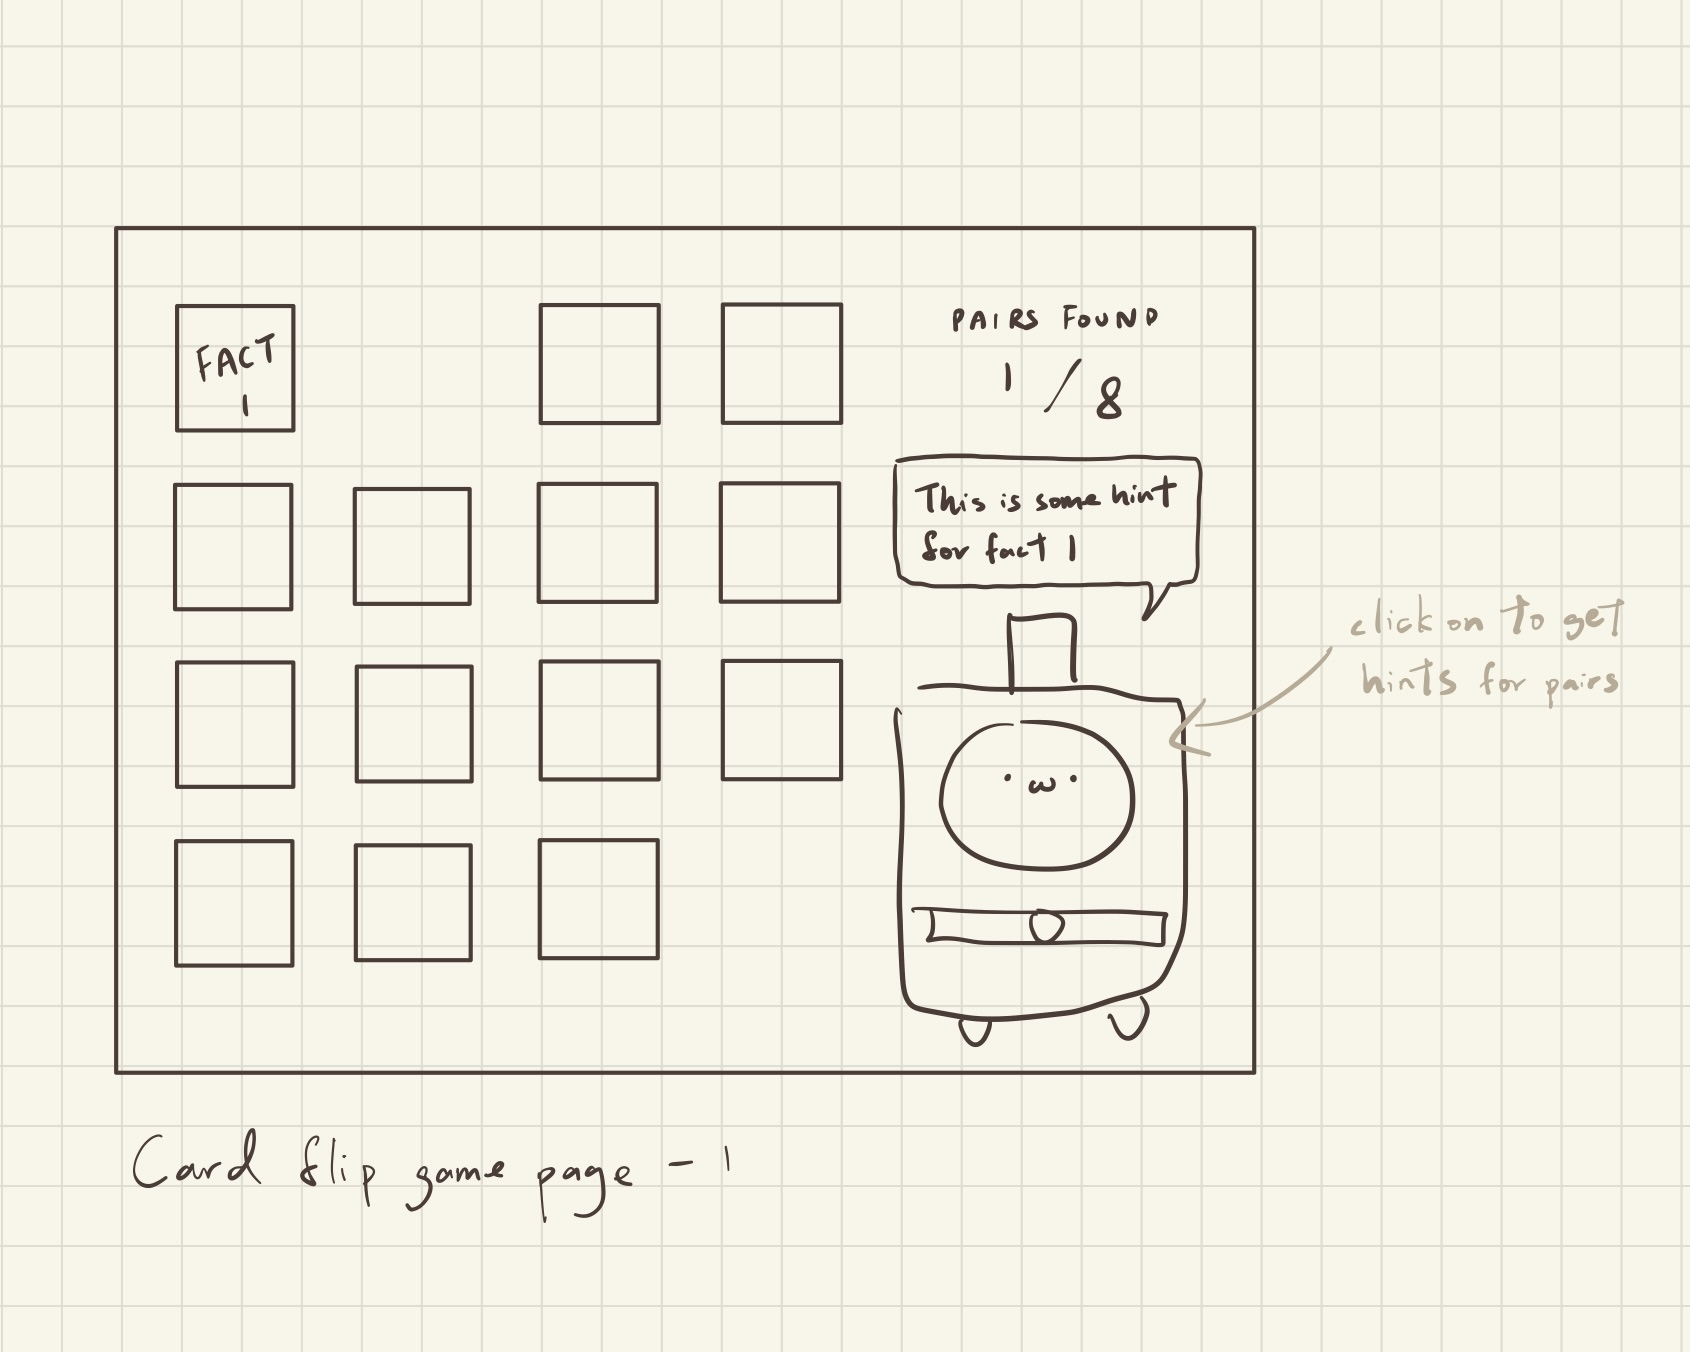 FACT
1
PAIRS FOUND
1 / 8
This is some hint
for fact 1
click on to get
hints for pairs
Card flip game page - 1